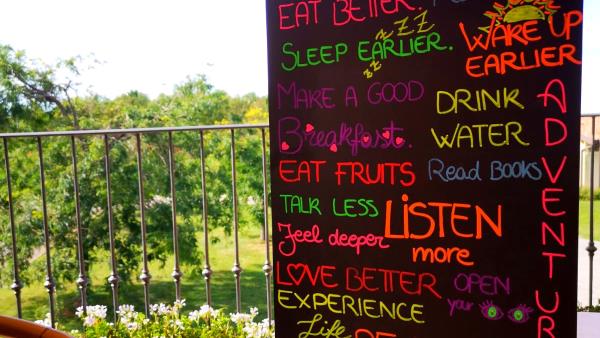 EAT BETTER.
zZZ
SLEEP EARLIER.
zz
WAKE UP
EARLIER
MAKE A GOOD
Breakfast.
DRINK
WATER
EAT FRUITS
Read BOOKS
TALK LESS
LiSTEN
more
Feel deeper
LOVE BETTER
OPEN
your
EXPERIENCE
Life
ADVENTUR